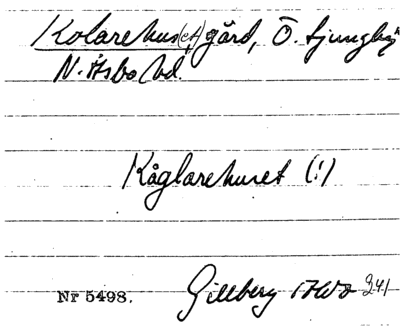 Kolarehus(et) gård, Ö. Ljungby
N. Åsbo hd.
Kåglarehuset (!)
Nr 5498. Gillberg 241